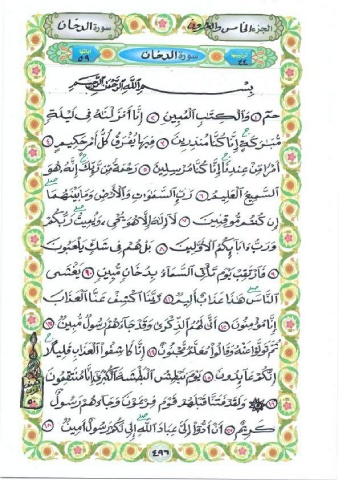 الجزء الخامس والعشرون سورة الدخان
ترتيبها ٤٤ سورة الدخان آياتها ٥٩
بسم الله الرحمن الرحيم
حم ١ والكتاب المبين ٢ إنا أنزلناه في ليلة
مباركة إنا كنا منذرين ٣ فيها يفرق كل أمر حكيم ٤
أمرا من عندنا إنا كنا مرسلين ٥ رحمة من ربك إنه هو
السميع العليم ٦ رب السموات والأرض وما بينهما
إن كنتم موقنين ٧ لا إله إلا هو يحي ويميت ربكم
ورب ءابائكم الأولين ٨ بل هم في شك يلعبون
٩ فارتقب يوم تأتي السماء بدخان مبين ١٠ يغشى
الناس هذا عذاب أليم ١١ ربنا اكشف عنا العذاب
إنا مؤمنون ١٢ أنى لهم الذكرى وقد جاءهم رسول مبين ١٣
ثم تولوا عنه وقالوا معلم مجنون ١٤ إنا كاشفوا العذاب قليلا
إنكم عائدون ١٥ يوم نبطش البطشة الكبرى إنا منتقمون
١٦ ولقد فتنا قبلهم قوم فرعون وجاءهم رسول
كريم ١٧ أن أدوا إلي عباد الله إني لكم رسول أمين ١٨
٤٩٦